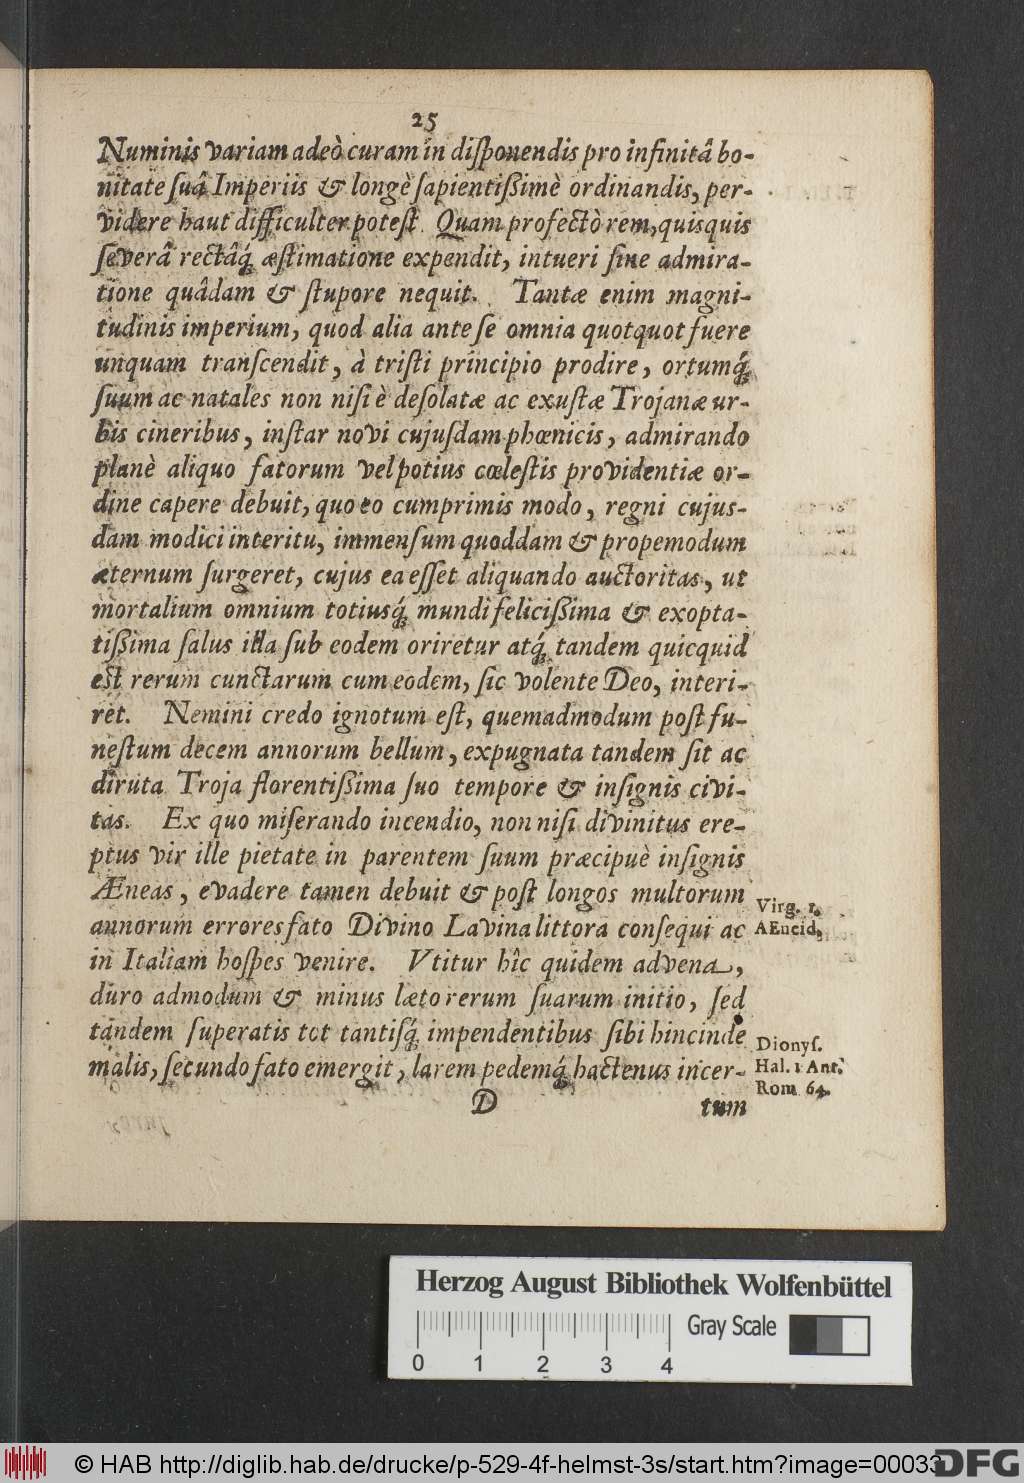 25
Numinis variam adeò curam in diſponendis pro infinitâ bo-
nitate ſuâ Imperiis & longè ſapientiſſimè ordinandis, per-
videre haut difficulter poteſt. Quam profectò rem, quisquis
ſeverâ rectâq́; æſtimatione expendit, intueri ſine admira-
tione quâdam & ſtupore nequit. Tantæ enim magni-
tudinis imperium, quod alia ante ſe omnia quotquot fuere
unquam tranſcendit, à triſti principio prodire, ortumq́;
ſuum ac natales non niſi è deſolatæ ac exuſtæ Trojanæ ur-
bis cineribus, inſtar novi cujuſdam phœnicis, admirando
planè aliquo fatorum vel potius cœleſtis providentiæ or-
dine capere debuit, quo eo cumprimis modo, regni cujus-
dam modici interitu, immenſum quoddam & propemodum
æternum ſurgeret, cujus ea eſſet aliquando auctoritas, ut
mortalium omnium totiusq́; mundi feliciſſima & exopta-
tiſſima ſalus illa ſub eodem oriretur atq́; tandem quicquid
eſt rerum cunctarum cum eodem, ſic volente Deo, interi-
ret. Nemini credo ignotum eſt, quemadmodum poſt fu-
neſtum decem annorum bellum, expugnata tandem ſit ac
diruta Troja florentiſſima ſuo tempore & inſignis civi-
tas. Ex quo miſerando incendio, non niſi divinitus ere-
ptus vir ille pietate in parentem ſuum præcipuè inſignis
Æneas, evadere tamen debuit & poſt longos multorum
annorum errores fato Divino Lavina littora conſequi ac
in Italiam hoſpes venire. Vtitur hîc quidem advena,
duro admodum & minus læto rerum ſuarum initio, ſed
tandem ſuperatis tot tantiſq́; impendentibus ſibi hincinde
malis, ſecundo fato emergit, larem pedemq́; hactenus incer-
D tum
Virg. 1.
AEneid.
Dionyſ.
Hal. 1 Ant.
Rom 64.
Herzog August Bibliothek Wolfenbüttel
0 1 2 3 4
Gray Scale
© HAB http://diglib.hab.de/drucke/p-529-4f-helmst-3s/start.htm?image=00033
DFG